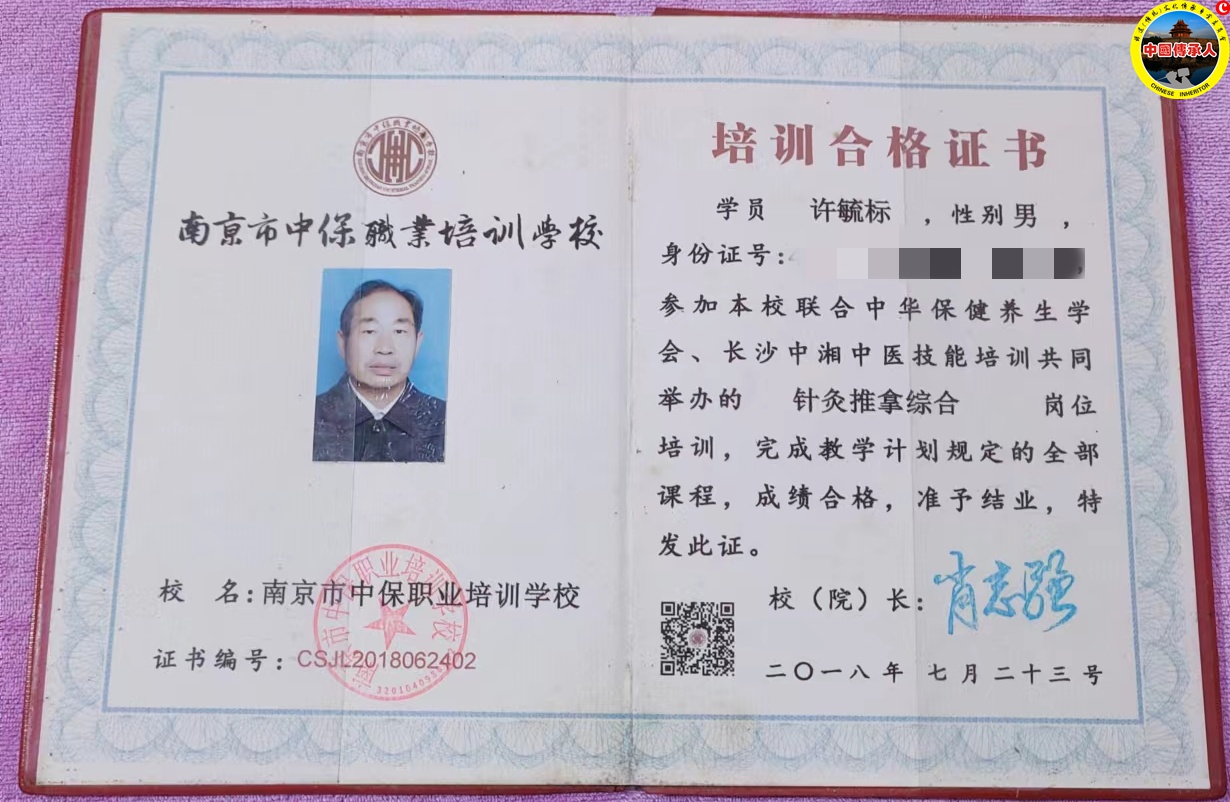 中國傳承人
CHINESE INHERITOR
南京市中保職業培训学校
校 名:南京市中保职业培训学校
证书编号:CSJL2018062402
培训合格证书
学员 许毓标 ,性别 男 ,
身份证号:
参加本校联合中华保健养生学
会、长沙中湘中医技能培训共同
举办的 针灸推拿综合 岗位
培训,完成教学计划规定的全部
课程,成绩合格,准予结业,特
发此证。
校(院)长:肖志强
二〇一八年 七月二十三号